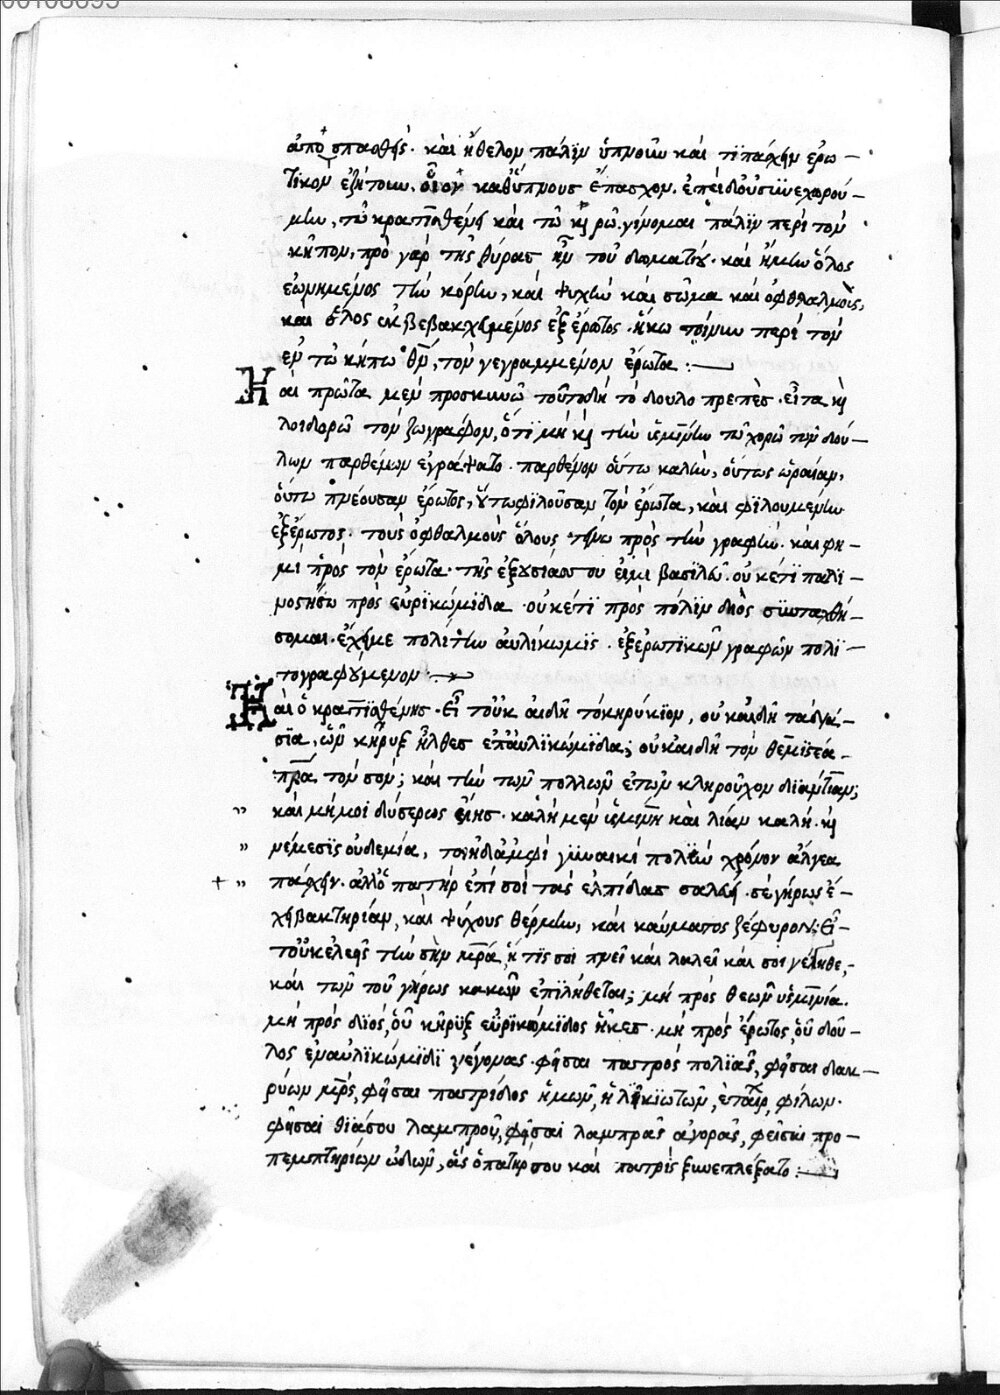 ἀποσπασθείς. καὶ ἤθελον πάλιν ὑπνοῦν καί τι πάσχειν ἐρω-
τικὸν ἐζήτουν, οἷον καθ' ὕπνους ἔπασχον. ἐπεὶ δ' οὐ συνεχωρού-
μην τῶ κρατισθένει καὶ τῶ καιρῶ, γίνομαι πάλιν περὶ τὸν
κῆπον, πρὸ γὰρ τῆς θύρας ἦν τοῦ δωματίου. καὶ ἤμην ὅλος
ἐωνημένος τὴν κόρην, καὶ ψυχὴν καὶ σῶμα καὶ ὀφθαλμοῖς,
καὶ ὅλος ἐκβεβακχευμένος ἐξ ἔρωτος. ἥκω τοίνυν περὶ τὸν
ἐν τῶ κήπω θμ, τὸν γεγραμμένον ἔρωτα :—
Καὶ πρῶτα μὲν προσκυνῶ τοῦτο δὴ τὸ δουλοπρεπὲς. εἶτα καὶ
λοιδορῶ τὸν ζωγράφον, ὅτι μὴ καὶ τὴν ὑσμίνην τῶ χορῶ τῶν δού-
λων παρθένων ἐγράψατο. παρθένον οὕτω καλὴν, οὕτως ὡραίαν,
οὕτω πνέουσαν ἔρωτος, οὕτω φιλοῦσαν τὸν ἔρωτα, καὶ φιλουμένην
ἐξ ἔρωτος. τοὺς ὀφθαλμοὺς ὅλους τείνω πρὸς τὴν γραφήν. καὶ φη-
μὶ πρὸς τὸν ἔρωτα. τῆς ἐξουσίας σου εἰμὶ βασιλεῦ. οὐκέτι παλι-
νοστήσω πρὸς εὐρικώμιδα. οὐκέτι πρὸς πόλιν διὸς συνταχθή-
σομαι. ἔχει με πολίτην αὐλίκωμις. ἐξ ἐρωτικῶν γραφῶν πολι-
τογραφούμενον :—
Καὶ ὁ κρατισθένης. Εἶτ' οὐκ αἰδῆ τὸ κηρύκιον, οὐκ αἰδῆ τὰ διά-
σια, ὧν κῆρυξ ἦλθες ἐπ' αὐλικώμιδα; οὐκ αἰδῆ τὸν θεμιστέα
πρα τὸν σόν; καὶ τὴν τῶν πολλῶν ἐτῶν κληροῦχον διάντειαν;
καὶ μή μοι δύσερως εἴης. καλὴ μὲν ὑσμίνη καὶ λίαν καλή. καὶ
νέμεσις οὐδεμία, τοιῆδ' ἀμφὶ γυναικὶ πολὺν χρόνον ἄλγεα
πάσχειν. ἀλλ' ὁ πατὴρ ἐπὶ σοὶ τὰς ἐλπίδας σαλεύει. σὲ γήρως ἔ-
χει βακτηρίαν, καὶ ψύχους θέρμην, καὶ καύματος ζέφυρον; Εἶ-
τ' οὐκ ἐλεεῖς τὴν σὴν μρα, ἥτις σοι πνεῖ καὶ λαλεῖ καὶ σοὶ γέγηθε,
καὶ τῶν τοῦ γήρως κακῶν ἐπιλήθεται; μὴ πρὸς θεῶν ὑσμινία.
μὴ πρὸς διὸς, οὗ κῆρυξ εὐρικώμιδος ἧκες. μὴ πρὸς ἔρωτος, οὗ δοῦ-
λος ἐν αὐλικώμιδι γέγονας. φεῖσαι πατρὸς πολιᾶς, φεῖσαι δακ-
ρύων μρς, φεῖσαι πατρίδος ἡμῶν, ἡλικιωτῶν, ἑταίρων, φίλων.
φεῖσαι θιάσου λαμπροῦ, φεῖσαι λαμπρᾶς ἀγορᾶς, φεῖσαι προ-
πεμπτηρίων ὠδῶν, ἃς ὁ πατήρ σου καὶ πατρὶς ξυνεπλέξατο :—